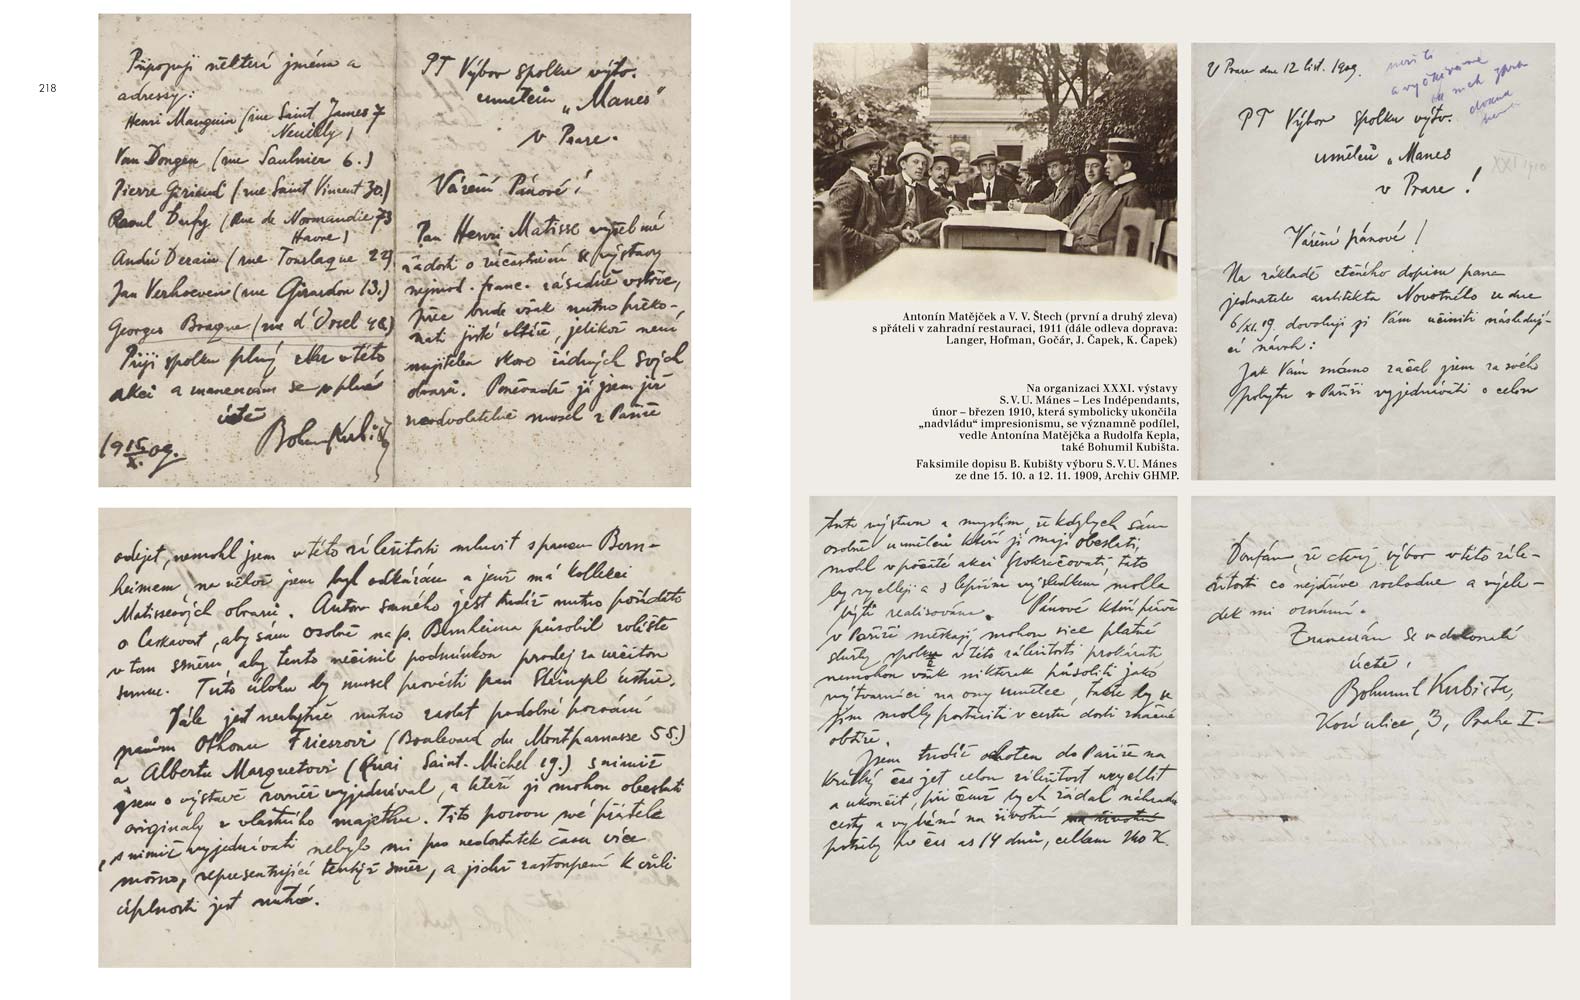 218
Připojuji některá jména a
adressy:
Henri Manguin (rue Saint James 7
Neuilly)
Van Dongen (rue Saulnier 6.)
Pierre Girieud (rue Saint Vincent 30)
Raoul Dufy (Rue de Normandie 73
Havre)
André Derain (rue Tourlaque 22)
Jan Verhoeven (rue Girardon 13.)
Georges Braque (rue d'Orsel 48)
Přeji spolku plný zdar v této
akci a znamenám se v plné
úctě
Bohumil Kubišta
19 15/X. 09.
PT Výbor spolku výtv.
umělců „Manes"
v Praze.
Vážení Pánové!
Pan Henri Matisse vyřkl mé
žádosti o zúčastnění se výstavy
nejmod. franc. zásadně vstříc,
přec bude však nutno překo-
nati jisté obtíže, jelikož není
majitelem skoro žádných svých
obrazů. Poněvadž já jsem již
neodvolatelně musel z Paříže
odejet, nemohl jsem v této záležitosti mluvit s panem Bern-
heimem, na něhož jsem byl odkázán a jenž má kollekci
Matissových obrazů. Autora samého jest tudíž nutno požádati
o laskavost, aby sám osobně na p. Bernheima působil zvláště
v tom směru, aby tento nečinil podmínkou prodej za určitou
summu. Tuto úlohu by musel provésti pan Štrimpl ústně.
Dále jest nezbytně nutno zaslat podobné pozvání
pánům Othonu Frieszovi (Boulevard du Montparnasse 55.)
a Albertu Marquetovi (Quai Saint-Michel 19.) s nimiž
jsem o výstavě rovněž vyjednával, a kteří ji mohou obeslati
originaly z vlastního majetku. Tito pozvou své přátele
s nimiž vyjednávati nebylo mi pro nedostatek času více
možno, representující tentýž směr, a jichž zastoupení k vůli
úplnosti jest nutné.
Antonín Matějček a V. V. Štech (první a druhý zleva)
s přáteli v zahradní restauraci, 1911 (dále odleva doprava:
Langer, Hofman, Gočár, J. Čapek, K. Čapek)
Na organizaci XXXI. výstavy
S. V. U. Mánes – Les Indépendants,
únor – březen 1910, která symbolicky ukončila
„nadvládu“ impresionismu, se významně podílel,
vedle Antonína Matějčka a Rudolfa Kepla,
také Bohumil Kubišta.
Faksimile dopisu B. Kubišty výboru S. V. U. Mánes
ze dne 15. 10. a 12. 11. 1909, Archiv GHMP.
V Praze dne 12 list. 1909.
PT Výbor spolku výtv.
umělců „Manes
v Praze!
XXI 1910
Vážení pánové!
Na základě ctěného dopisu pana
jednatele architekta Novotného ze dne
6/XI. 19. dovoluji si Vám učiniti následují-
cí návrh:
Jak Vám známo začal jsem za svého
pobytu v Paříži vyjednávati o celou
tuto výstavu a myslím, že kdybych sám
osobně umělců kteří ji mají obeslati,
mohl v počaté akci pokračovati, tato
by rychleji a s lepším výsledkem mohla
býti realisována. Pánové kteří právě
v Paříži meškají, mohou sice platné
služby spolku v této záležitosti prokázati
nemohou však nikterak působiti jako
výtvarníci na ony umělce, takže by se
jim mohly postaviti v cestu dosti značné
obtíže.
Jsem tudíž ochoten do Paříže na
krátký čas jet celou záležitost urychlit
a ukončit, při čemž bych žádal náhradu
cesty a vybění na životní
potřeby po čas as 14 dnů, celkem 240 K.
Doufám, že ctěný výbor v této zále-
žitosti co nejdříve rozhodne a výsle-
dek mi oznámí.
Znamenám se v dokonalé
úctě,
Bohumil Kubišta,
Kozí ulice, 3, Praha I